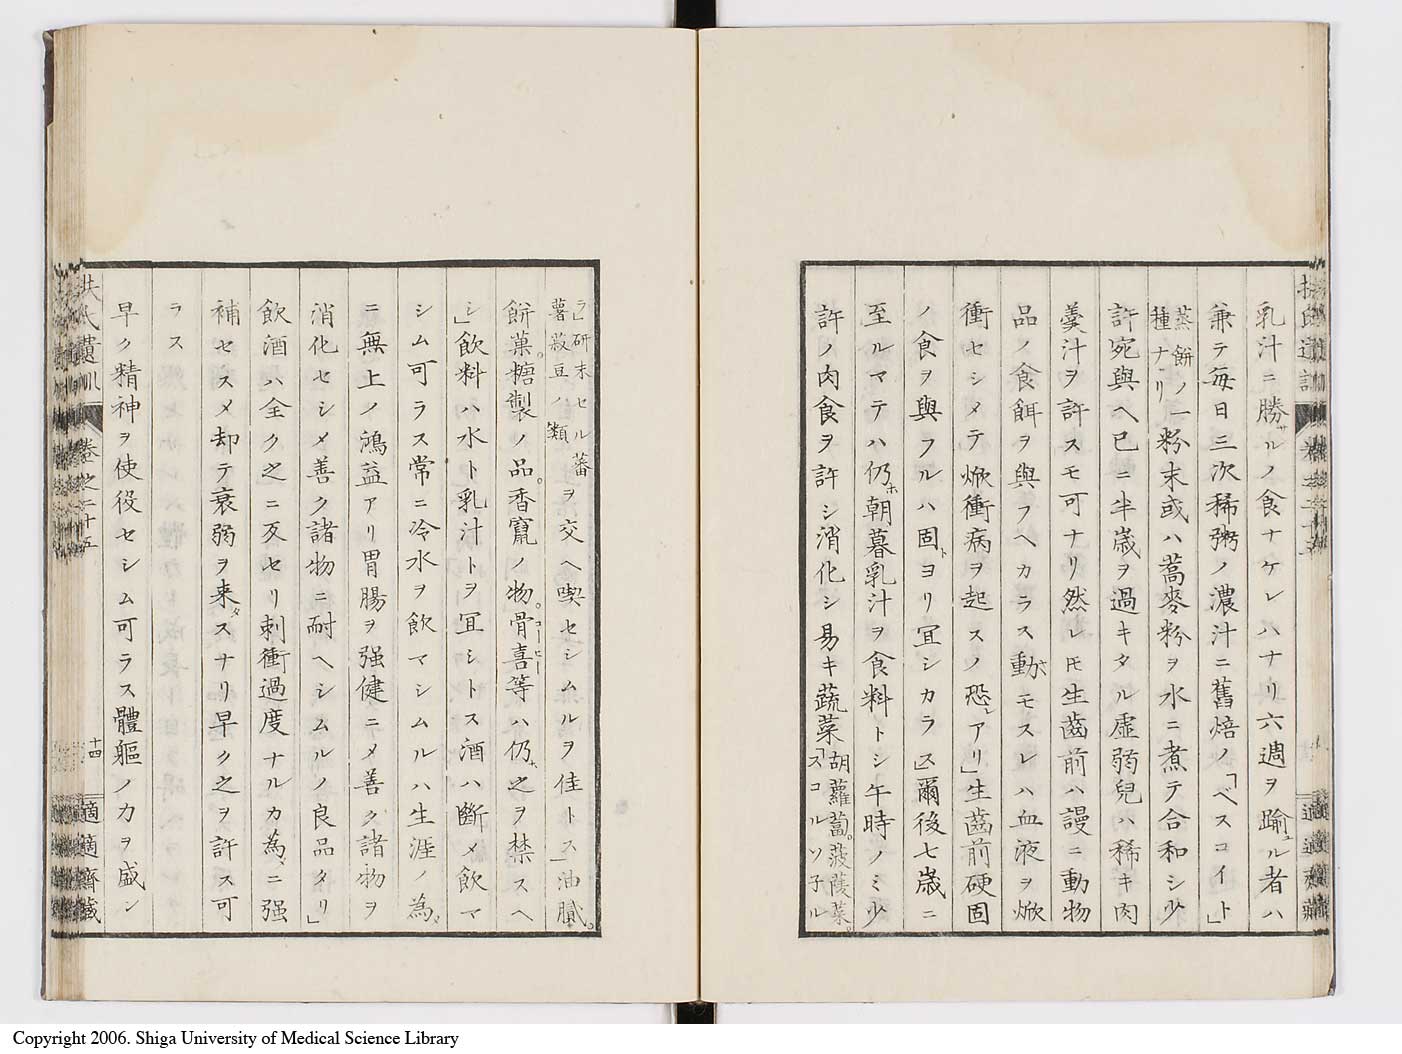 乳汁ニ勝ルノ食ナケレハナリ六週ヲ踰ル者ハ
兼テ毎日三次稀粥ノ濃汁ニ舊焙ノ「ベスコイト」
蒸餅ノ一種ナリ粉末或ハ蕎麥粉ヲ水ニ煮テ合和シ少
許宛與ヘ已ニ半歳ヲ過キタル虚弱兒ハ稀キ肉
羹汁ヲ許スモ可ナリ然レ𪜈生齒前ハ謾ニ動物
品ノ食餌ヲ與フヘカラス動モスレハ血液ヲ焮
衝セシメテ焮衝病ヲ起スノ恐アリ」生齒前硬固
ノ食ヲ與フルハ固ヨリ冝シカラス」爾後七歳ニ
至ルマテハ仍朝暮乳汁ヲ食料トシ午時ノミ少
許ノ肉食ヲ許シ消化シ易キ蔬菜胡蘿蔔。菠薐菜。「スコルソ子ル
ラ」研末セル蕃薯菽豆ノ類ヲ交ヘ喫セシムルヲ佳トス」油膩。
餅菓。糖製ノ品。香竄ノ物。骨喜等ハ仍之ヲ禁スヘ
シ」飲料ハ水ト乳汁トヲ冝シトス酒ハ斷メ飲マ
シム可ラス常ニ冷水ヲ飲マシムルハ生涯ノ為
ニ無上ノ鴻益アリ胃腸ヲ强健ニメ善ク諸物ヲ
消化セシメ善ク諸物ニ耐ヘシムルノ良品タリ」
飲酒ハ全ク之ニ反セリ刺衝過度ナルカ為ニ强
補セスメ却テ衰弱ヲ来スナリ早ク之ヲ許ス可
ラス
早ク精神ヲ使役セシム可ラス體軀ノ力ヲ盛ン
扶氏遺訓 卷之二十五 十四 適適齋藏
Copyright 2006. Shiga University of Medical Science Library